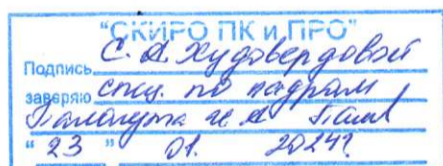 "СКИРО ПК и ПРО"
Подпись С. А. Худовердовой
заверяю спец. по кадрам
"23" 01. 2024г.